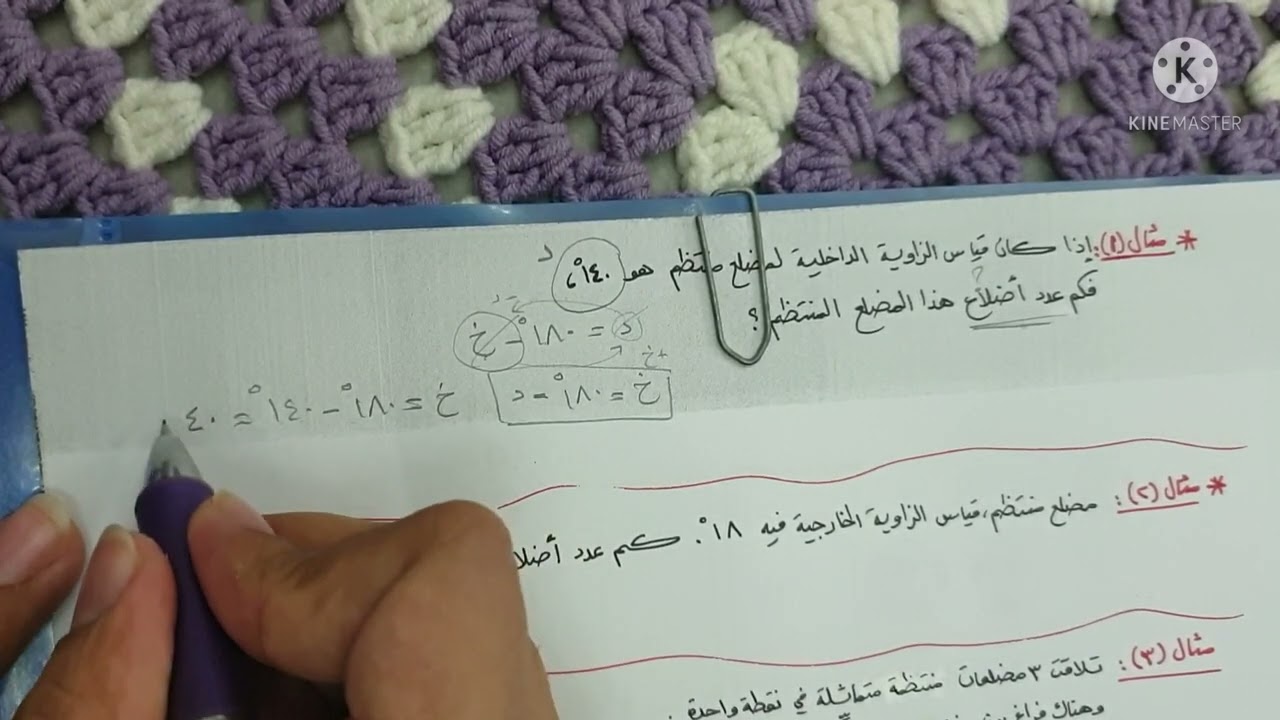 KINEMASTER
* مثال (١): إذا كان قياس الزاوية الداخلية لمضلع منتظم هو ١٤٠°، د
فكم عدد أضلاع هذا المضلع المنتظم؟
د = ١٨٠° - خ
خ = ١٨٠° - د
خ = ١٨٠° - ١٤٠° = ٤٠
* مثال (٢): مضلع منتظم، قياس الزاوية الخارجية فيه ١٨°. كم عدد
مثال (٣): تلاقت ٣ مضلعات منتظمة متماثلة في نقطة واحدة
وهناك فراغ